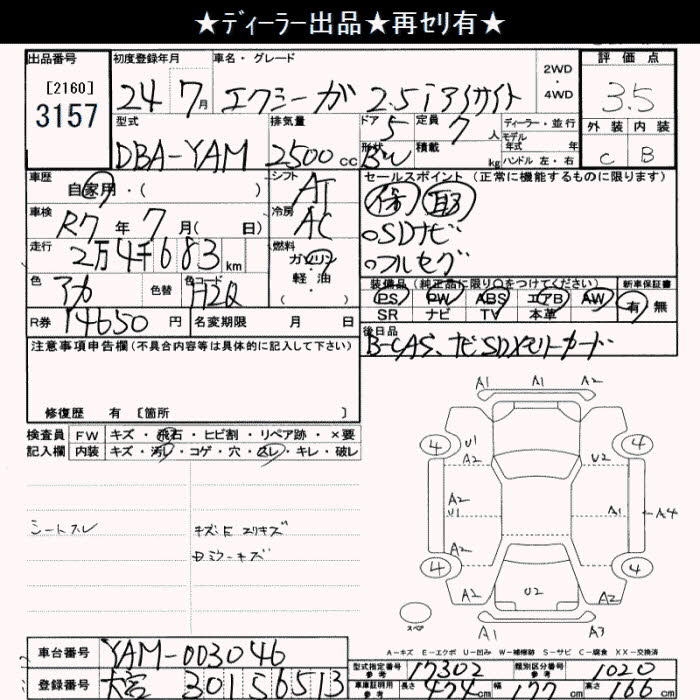 ★ディーラー出品★再セリ有★
出品番号 初度登録年月 車名・グレード 評価点
[2160]
3157
24年 7月 エクシーガ 2.5iアイサイト 2WD・4WD 3.5
型式 排気量 ドア 定員 ディーラー・並行 外装 内装
DBA-YAM 2500cc 5 7人 モデル年式 年
形状 BW 積載 kg ハンドル 左・右 C B
車歴 自家用・( ) シフト AT セールスポイント (正常に機能するものに限ります)
保 取
車検 R7年 7月( 日) 冷房 AC ○SDナビ
走行 2万4千683km 燃料 ガソリン・軽油・( ) ○フルセグ
色 アカ 色替 色コード H2Q 装備品(純正品に限り○をつけてください) 新車保証書
PS PW ABS エアB AW 有 無
SR ナビ TV 本革
R券 14650円 名変期限 月 日 後日品
B-CAS、ナビSDメモリーカード
注意事項申告欄(不具合内容等は具体的に記入して下さい)
修復歴 有 [箇所 ]
検査員 FW キズ・飛石・ヒビ割・リペア跡・×要
記入欄 内装 キズ・汚レ・コゲ・穴・スレ・キレ・破レ
シートスレ
A1 A1 A2
4 U1 4
A2 A2 U2
A2
U1 A1 A4
A2
4 4
U2
A1 A3
スペア
A-キズ E-エクボ U-凹み W-補修跡 S-サビ C-腐食 XX-交換済
車台番号 YAM-003046
登録番号 大宮 301 5 6513
型式指定番号 参考 17302 類別区分番号 参考 1020
車庫証明用 参考 長さ 474cm 幅 177cm 高さ 166cm